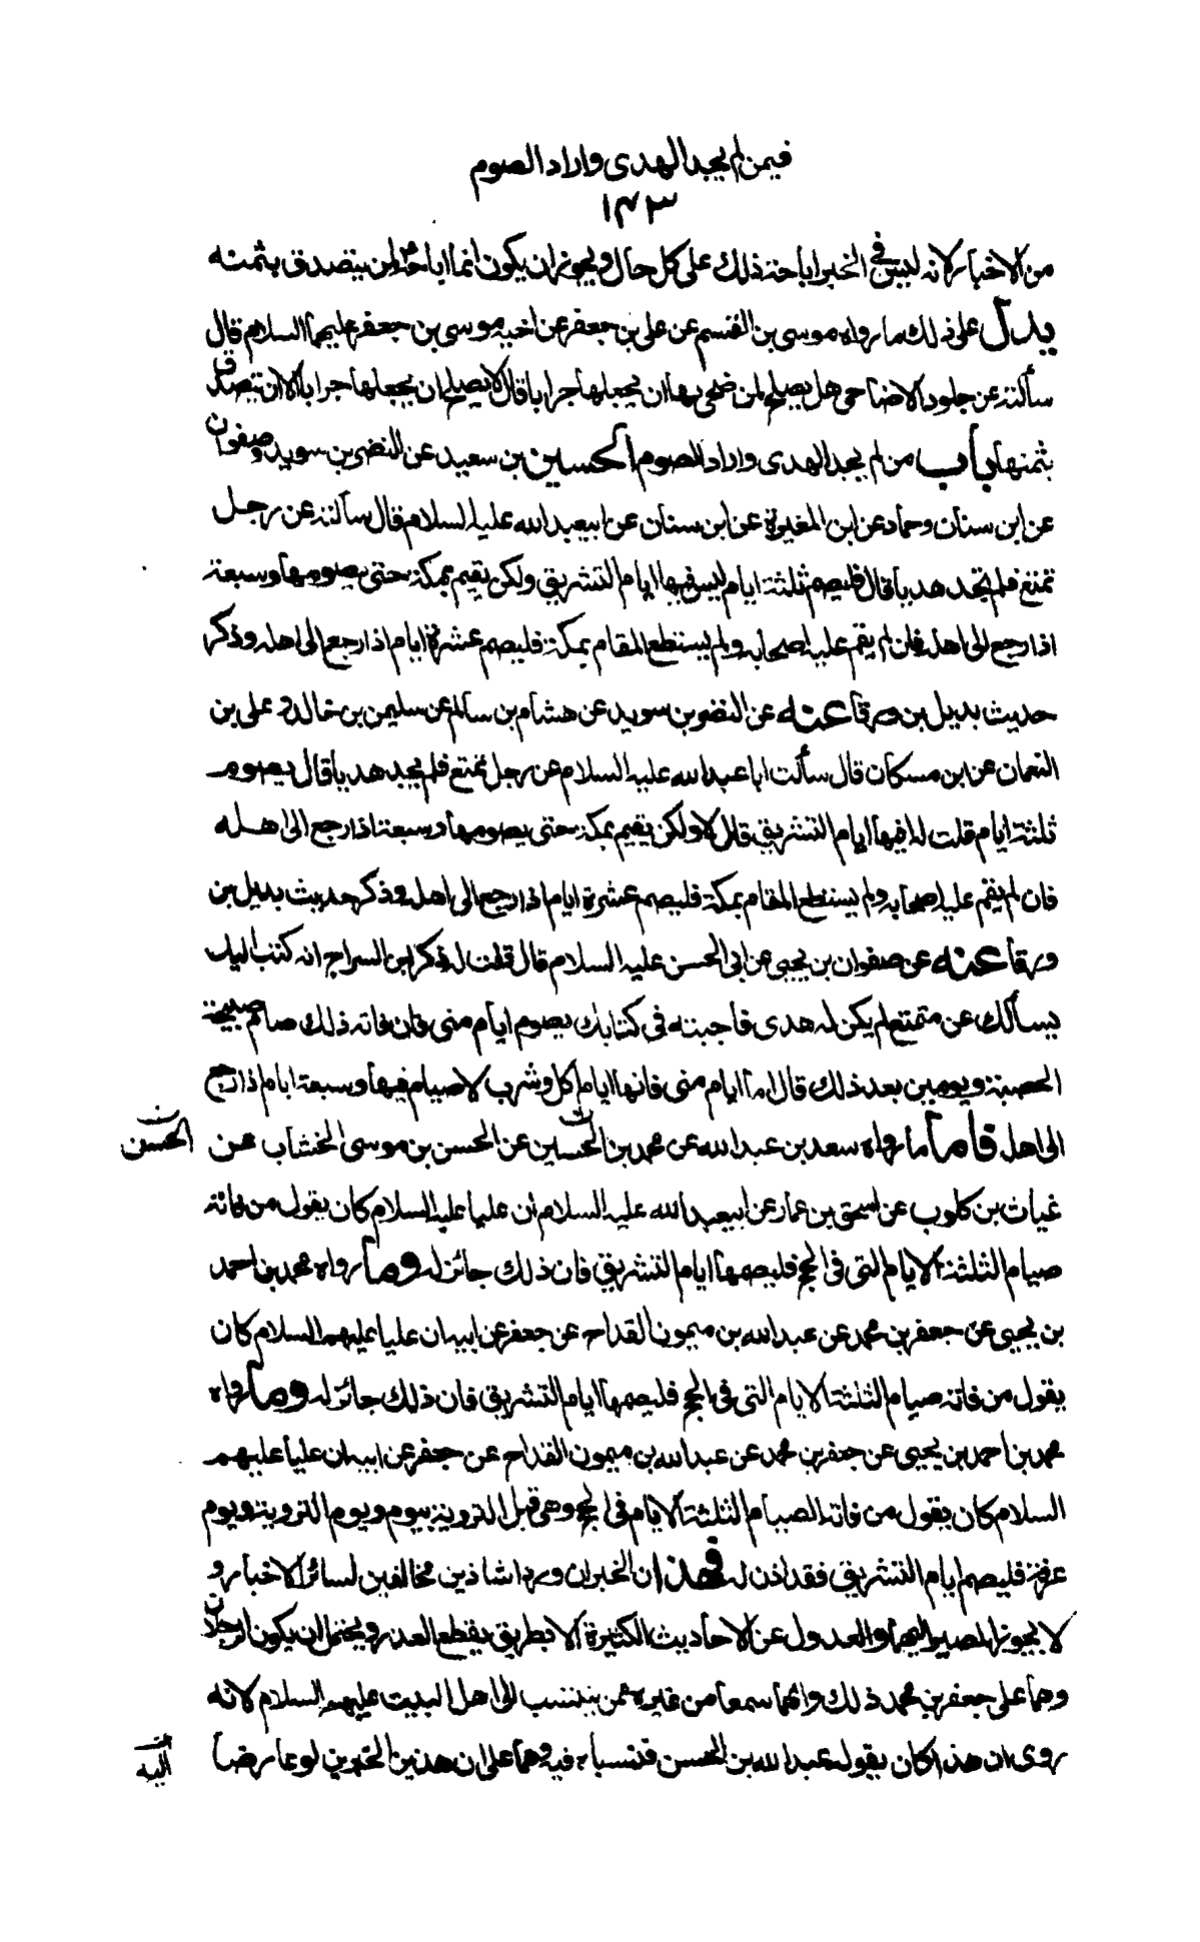 فيمن لم يجد الهدى واراد الصوم
١٤٣
من الاخبار لانه ليس في الخبر اباحة ذلك على كل حال ويجوز ان يكون انما اباحه لمن يتصدق بثمنه
يدل على ذلك ما رواه موسى بن القسم عن على بن جعفر عن اخيه موسى بن جعفر عليهما السلام قال
سألته عن جلود الاضاحى هل يصلح لمن ضحى بها ان يجعلها جرابا قال لا يصلح ان يجعلها جرابا الا ان تتصدق
بثمنها باب من لم يجد الهدى واراد الصوم الحسين بن سعيد عن النضر بن سويد وصفوان
عن ابن سنان وحماد عن ابن المغيرة عن ابن سنان عن ابيعبد الله عليه السلام قال سألته عن رجل
تمتع فلم يجد هديا قال فليصم ثلثة ايام ليس فيها ايام التشريق ولكن يقيم بمكة حتى يصومها وسبعة
اذا رجع الى اهله فان لم يقم عليه اصحابه ولم يستطع المقام بمكة فليصم عشرة ايام اذا رجع الى اهله وذكر
حديث بديل بن ورقا عنه عن النضر بن سويد عن هشام بن سالم عن سليمن بن خالد وعلى بن
النعمان عن ابن مسكان قال سألت ابا عبد الله عليه السلام عن رجل تمتع فلم يجد هديا قال يصوم
ثلثة ايام قلت له افيها ايام التشريق قال لا ولكن يقيم بمكة حتى يصومها وسبعة اذا رجع الى اهله
فان لم يقم عليه اصحابه ولم يستطع المقام بمكة فليصم عشرة ايام اذا رجع الى اهله وذكر حديث بديل بن
ورقا عنه عن صفوان بن يحيى عن ابى الحسن عليه السلام قال قلت له ذكر ابن السراج انه كتب اليك
يسألك عن متمتع لم يكن له هدى فاجبته فى كتابك يصوم ايام منى فان فاته ذلك صام صبيحة
الحصبة ويومين بعد ذلك قال اما ايام منى فانها ايام اكل وشرب لا صيام فيها وسبعة ايام اذا رجع
الى اهله فاما ما رواه سعد بن عبد الله عن محمد بن الحسين عن الحسن بن موسى الخشاب عن
الحسن
غياث بن كلوب عن اسحق بن عمار عن ابيعبد الله عليه السلام ان عليا عليه السلام كان يقول من فاته
صيام الثلثة الايام التى فى الحج فليصمها ايام التشريق فان ذلك جائز له وما رواه محمد بن احمد
بن يحيى عن جعفر بن محمد عن عبد الله بن ميمون القداح عن جعفر عن ابيه ان عليا عليهم السلام كان
يقول من فاته صيام الثلثة الايام التى فى الحج فليصمها ايام التشريق فان ذلك جائز له وما رواه
محمد بن احمد بن يحيى عن جعفر بن محمد عن عبد الله بن ميمون القداح عن جعفر عن ابيه ان عليا عليهم
السلام كان يقول من فاته الصيام الثلثة الايام فى الحج وهى قبل التروية بيوم ويوم التروية ويوم
عرفة فليصم ايام التشريق فقد اذن له فهذان الخبران وردا شاذين مخالفين لسائر الاخبار و
لا يجوز المصير اليهما والعدول عن الاحاديث الكثيرة الا بطريق يقطع العذر ويحتمل ان يكون الرجلان
وهما على جعفر بن محمد ذلك وانهما سمعا من غيره ممن ينتسب الى اهل البيت عليهم السلام لانه
روى ان هذا كان يقوله عبد الله بن الحسن فنسباه فيه وهما على ان هذين الخبرين لو عارضا
اليه